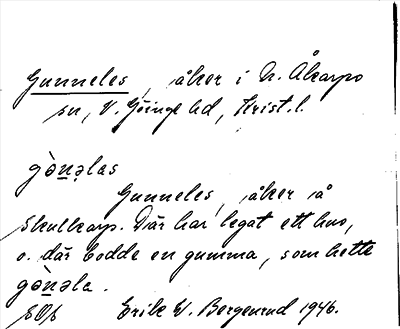 Gunneles, åker i N. Åkarps
sn, V. Göinge hd, Krist. l.
gọ̀nəlas
Gunneles, åker på
Skulkarp. Där har legat ett hus,
o. där bodde en gumma, som hette
gọ̀nəla.
Erik W. Bergenrud 1946.